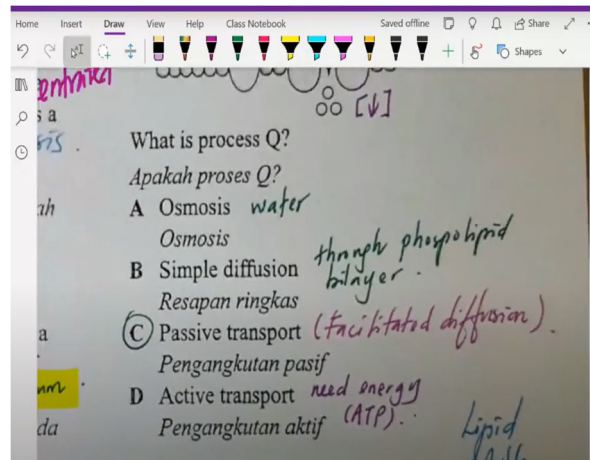 Home Insert Draw View Help Class Notebook Saved offline Share
Shapes
s a
[↓]
sis.
What is process Q?
Apakah proses Q?
ah
A Osmosis water
Osmosis
B Simple diffusion through phospolipid bilayer.
Resapan ringkas
a
C Passive transport (Facilitated diffusion).
Pengangkutan pasif
D Active transport need energy (ATP).
da
Pengangkutan aktif
Lipid